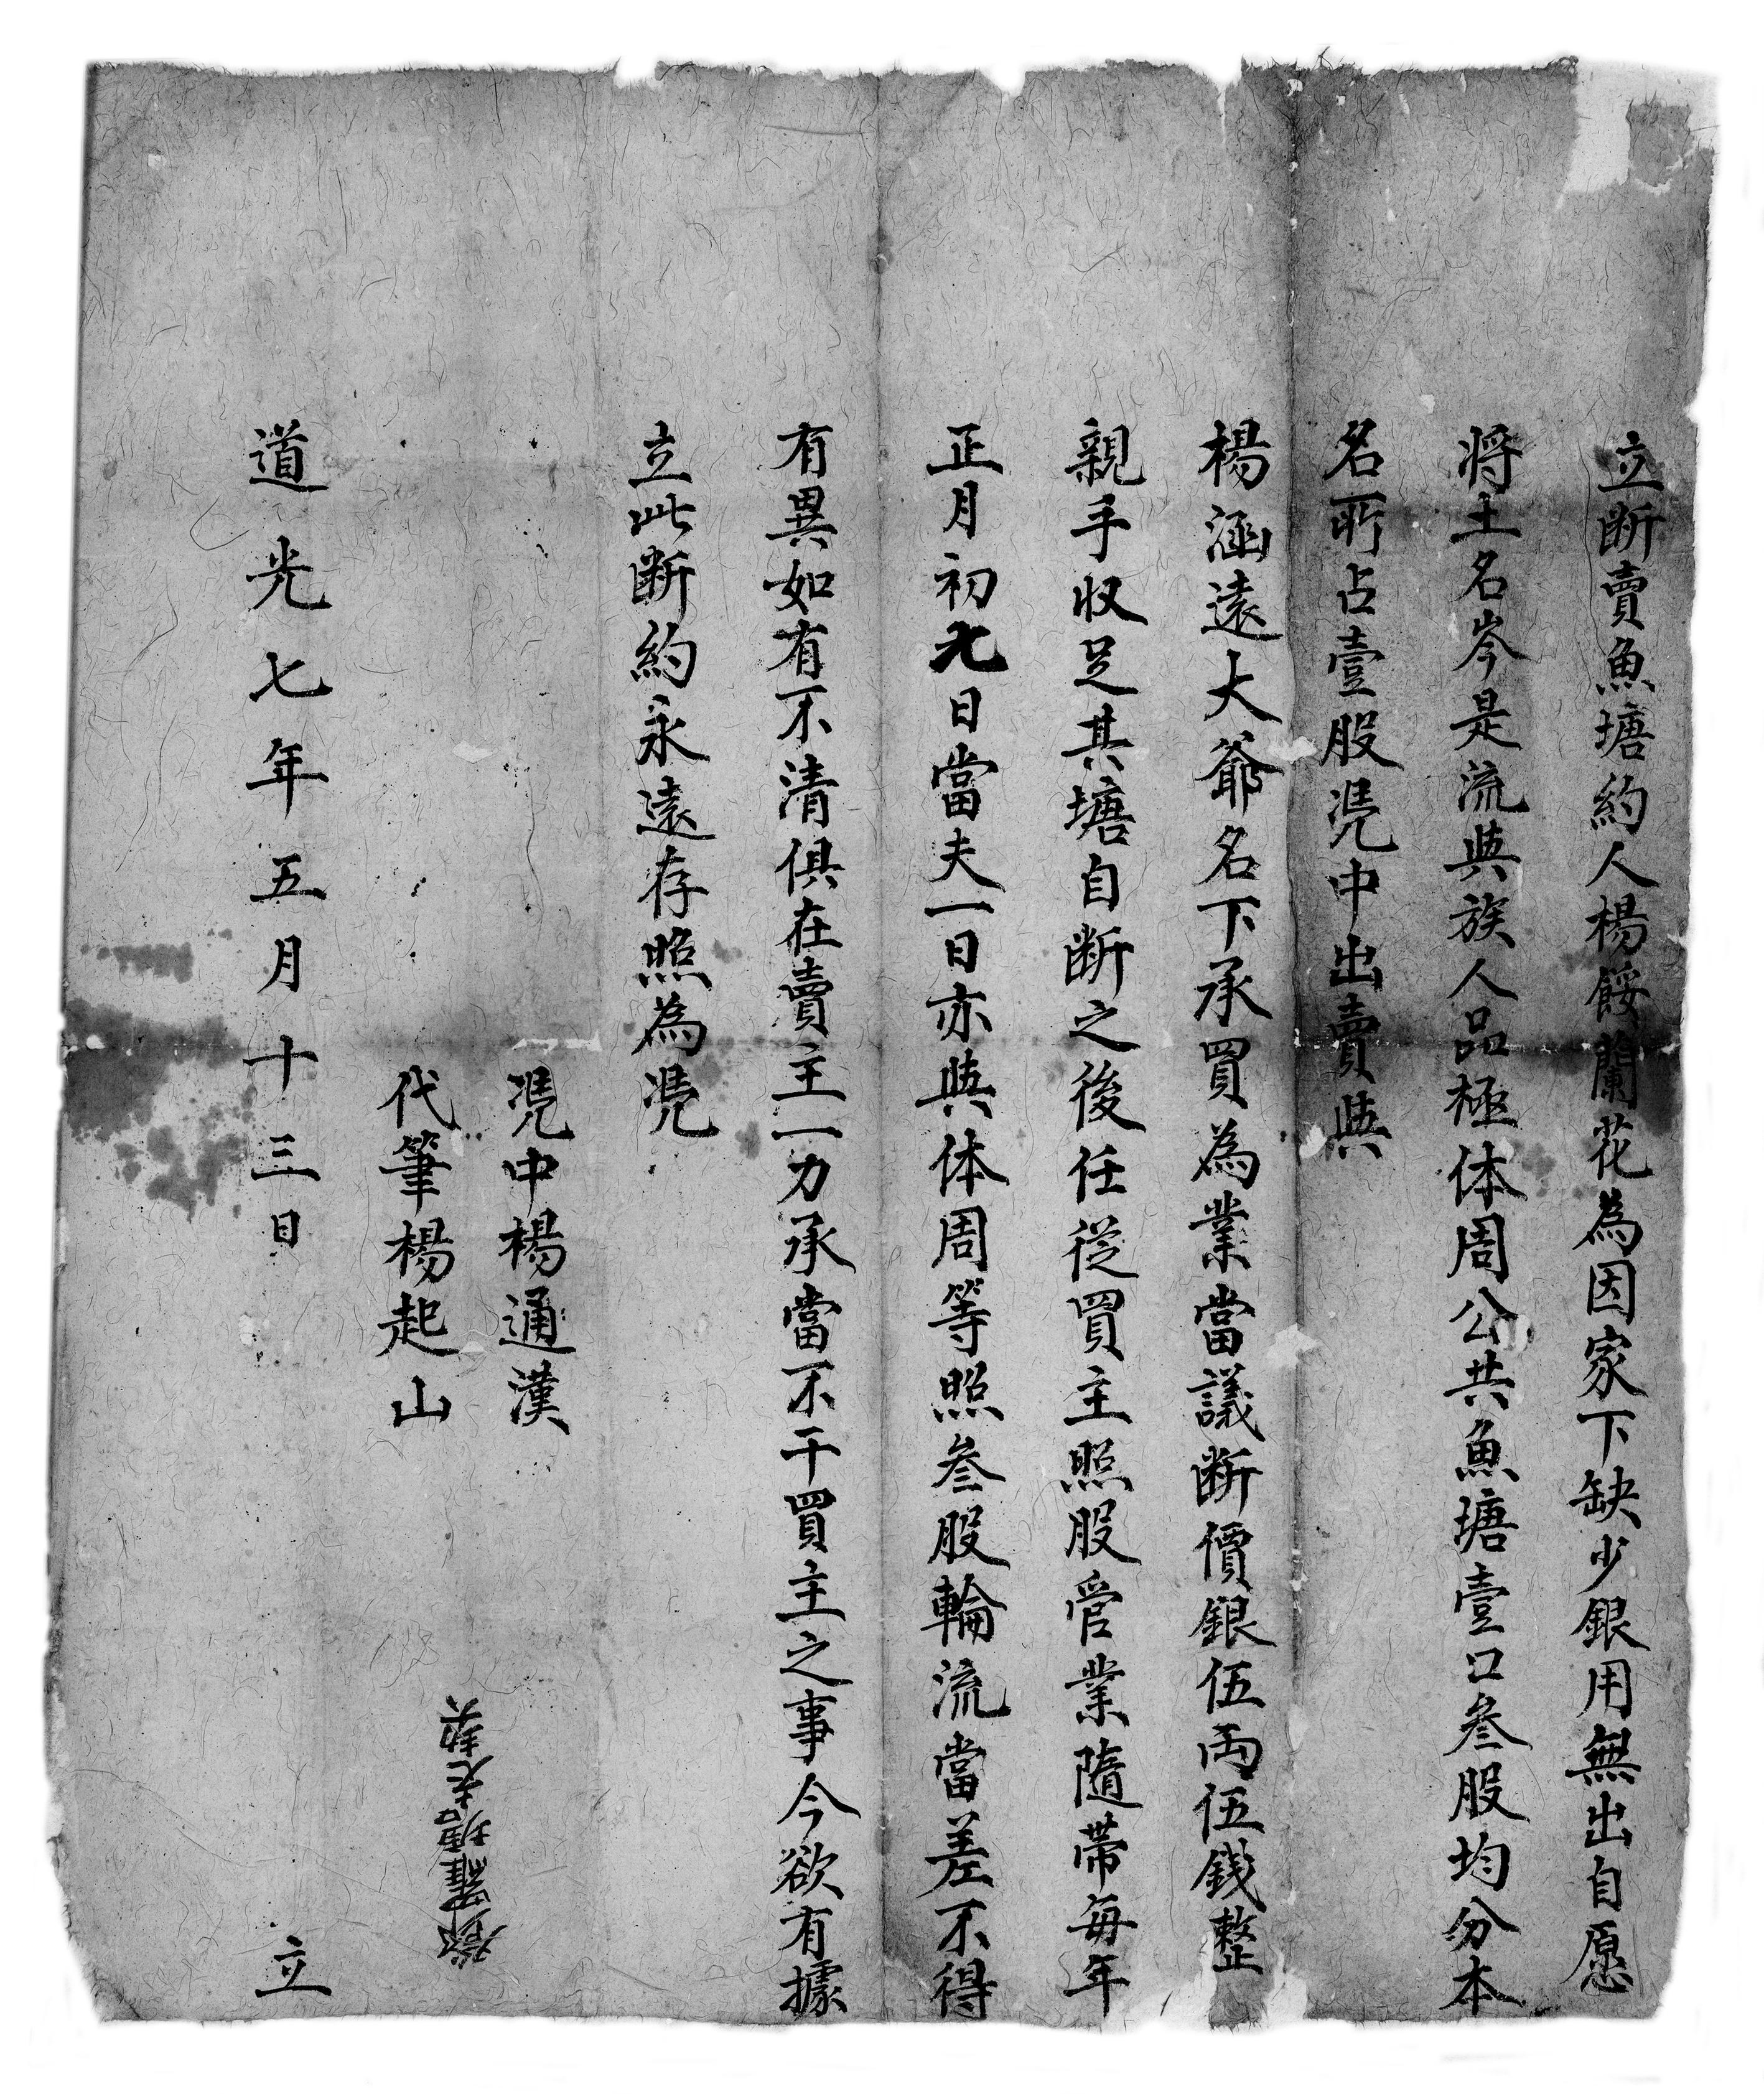 立断賣魚塘約人楊餒蘭花為因家下缺少銀用無出自愿
将土名岑是流與族人品極体周公共魚塘壹口叁股均分本
名所占壹股凴中出賣與
楊涵遠大爺名下承買為業當議断價銀伍両伍錢整
親手収足其塘自断之後任從買主照股管業隨帯每年
正月初九日當夫一日亦與体周等照叁股輪流當差不得
有異如有不清俱在賣主一力承當不干買主之事今欲有據
立此断約永遠存照為凴
凴中楊通漢
代筆楊起山
塘老契
道光七年五月十三日 立